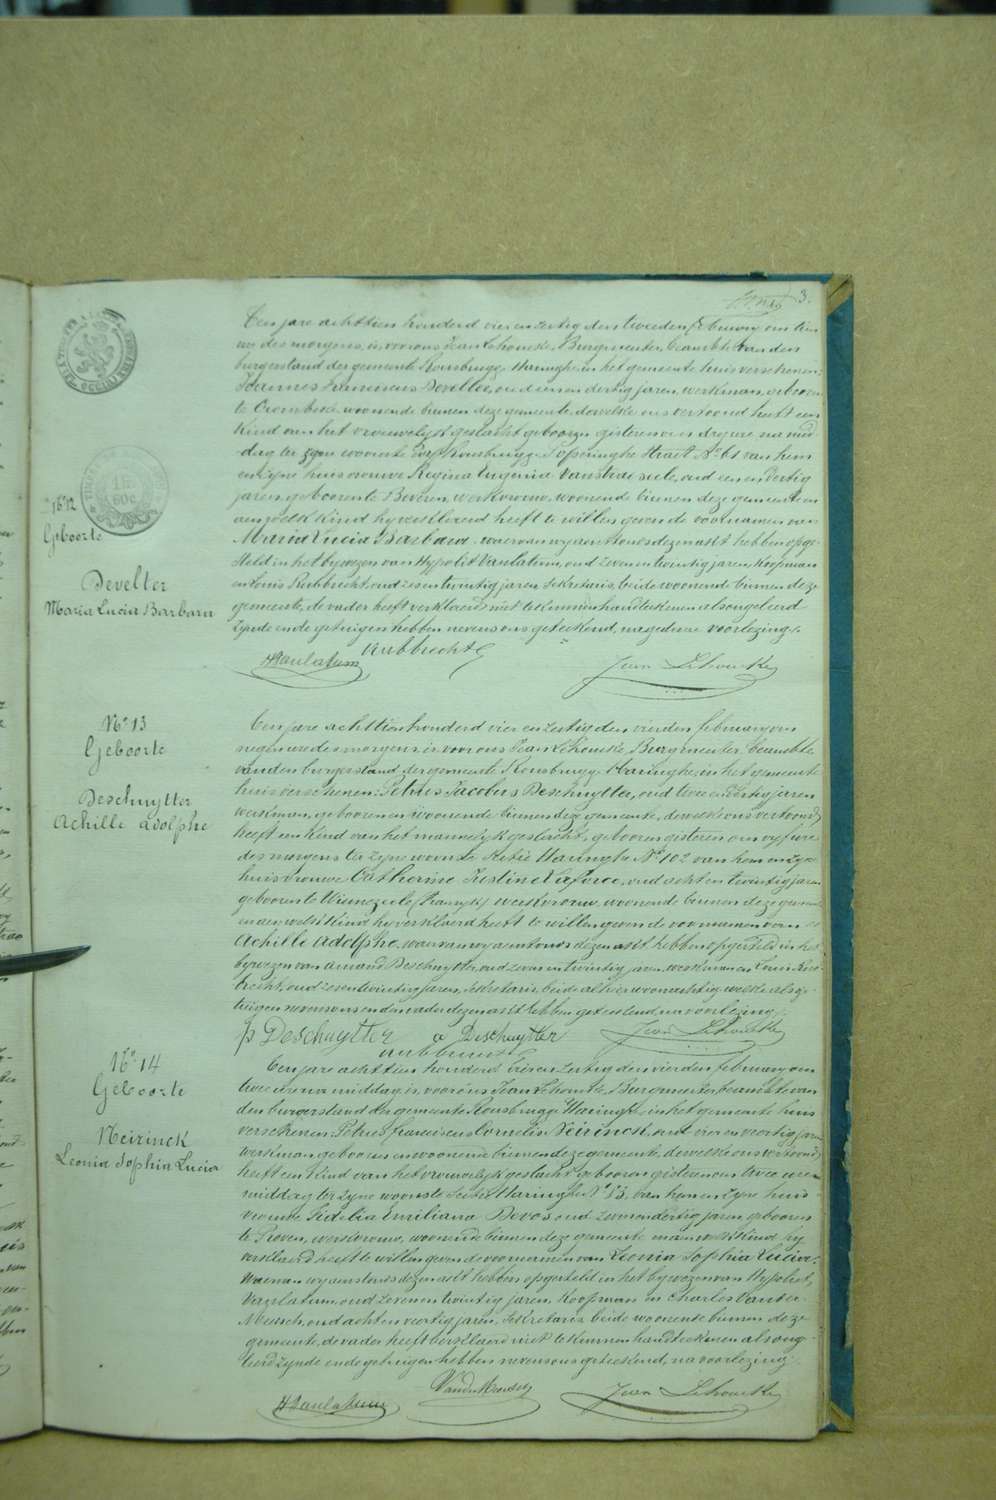 3.
Een jare achttien honderd vier en zestig den tweeden february om tien
ure des morgens, is voor ons Jean Lehoucke, Burgmeester, beambte van den
burgerstand der gemeente Rousbrugge Haringhe in het gemeente huis verschenen:
Joannes Develter, oud een en dertig jaren, werkman, geboren
te Crombeke, woonende binnen deze gemeente, dewelke ons vertoond heeft een
kind van het vrouwelyk geslacht, geboren gisteren om drij ure na mid-
dag ter zyne woonste Rousbrugge straet No 61 van hem
en zyne huisvrouwe Regina Eugenia oud een en dertig
jaren, geboren te Beveren, werkvrouw, woonende binnen deze gemeente en
aen welk kind hy verklaerd heeft te willen geven de voornamen van
Maria Lucia Barbara, waervan wy aenstonds dezen akt hebben opge-
steld in het bywezen van Hypolit Vanlatum, oud zeven en twintig jaren, koopman
en Louis Rubbrecht, oud zes en twintig jaren, Sekretaris, beide woonende binnen deze
gemeente, de vader heeft verklaerd niet te kunnen handteekenen als ongeleerd
zynde ende getuigen hebben nevens ons geteekend, na gedane voorlezing.
No 12
Geboorte
Develter
Maria Lucia Barbara
HVanlatum
Rubbrecht
Jean Lehoucke
No 13
Geboorte
Deschuytter
Achille Adolphe
Een jare achttien honderd vier en zestig den vierden february om
negen ure des morgens is voor ons Jean Lehoucke, Burgmeester, beambte
van den burgerstand der gemeente Rousbrugge Haringhe, in het gemeente
huis verschenen: Petrus Jacobus Deschuytter, oud twee en dertig jaren
werkman, geboren en woonende binnen deze gemeente, dewelke ons vertoond
heeft een kind van het mannelyk geslacht, geboren gisteren om vyf ure
des morgens ter zyne woonste Sectie Haringhe No 102 van hem en zyne
huisvrouwe Catherine Justine Laforce, oud acht en twintig jaren
geboren te Winnezeele, werkvrouw, woonende binnen deze gemeente
en aen welk kind hy verklaerd heeft te willen geven de voornamen van
Achille Adolphe, waervan wy aenstonds dezen akt hebben opgesteld in het
bywezen van Amand Deschuytter, oud zeven en twintig jaren, werkman en Louis Rub-
brecht, oud zes en twintig jaren, Sekretaris, beide alhier woonachtig welke als ge-
tuigen nevens ons en den vader dezen akt hebben geteekend, na voorlezing.
p Deschuytter a Deschuytter Jean Lehoucke
Rubbrecht
No 14
Geboorte
Neirinck
Leonia Sophia Lucia
Een jare achttien honderd vier en zestig den vierden february om
twee ure na middag, is voor ons Jean Lehoucke, Burgmeester, beambte van
den burgerstand der gemeente Rousbrugge Haringhe, in het gemeente huis
verschenen: Petrus Franciscus Cornelis Neirinck, oud vier en veertig jaren
werkman, geboren en woonende binnen deze gemeente, dewelke ons vertoond
heeft een kind van het vrouwelyk geslacht, geboren gisteren om twee ure na
middag ter zyne woonste Sectie Haringhe No 13, van hem en zyne huis-
vrouwe Fidelia Emiliana Devos, oud zeven en dertig jaren, geboren
te Proven, werkvrouw, woonende binnen deze gemeente en aen welk kind hy
verklaerd heeft te willen geven de voornamen van Leonia Sophia Lucia.
Waervan wy aenstonds dezen akt hebben opgesteld in het bywezen van Hypolit
Vanlatum, oud zeven en twintig jaren, koopman en Charles Vander-
Meersch, oud acht en veertig jaren, Sekretaris beide woonende binnen deze
gemeente, de vader heeft verklaerd niet te kunnen handteekenen als onge-
leerd zynde ende getuigen hebben nevens ons geteekend, na voorlezing.
HVanlatum
VanderMeersch
Jean Lehoucke